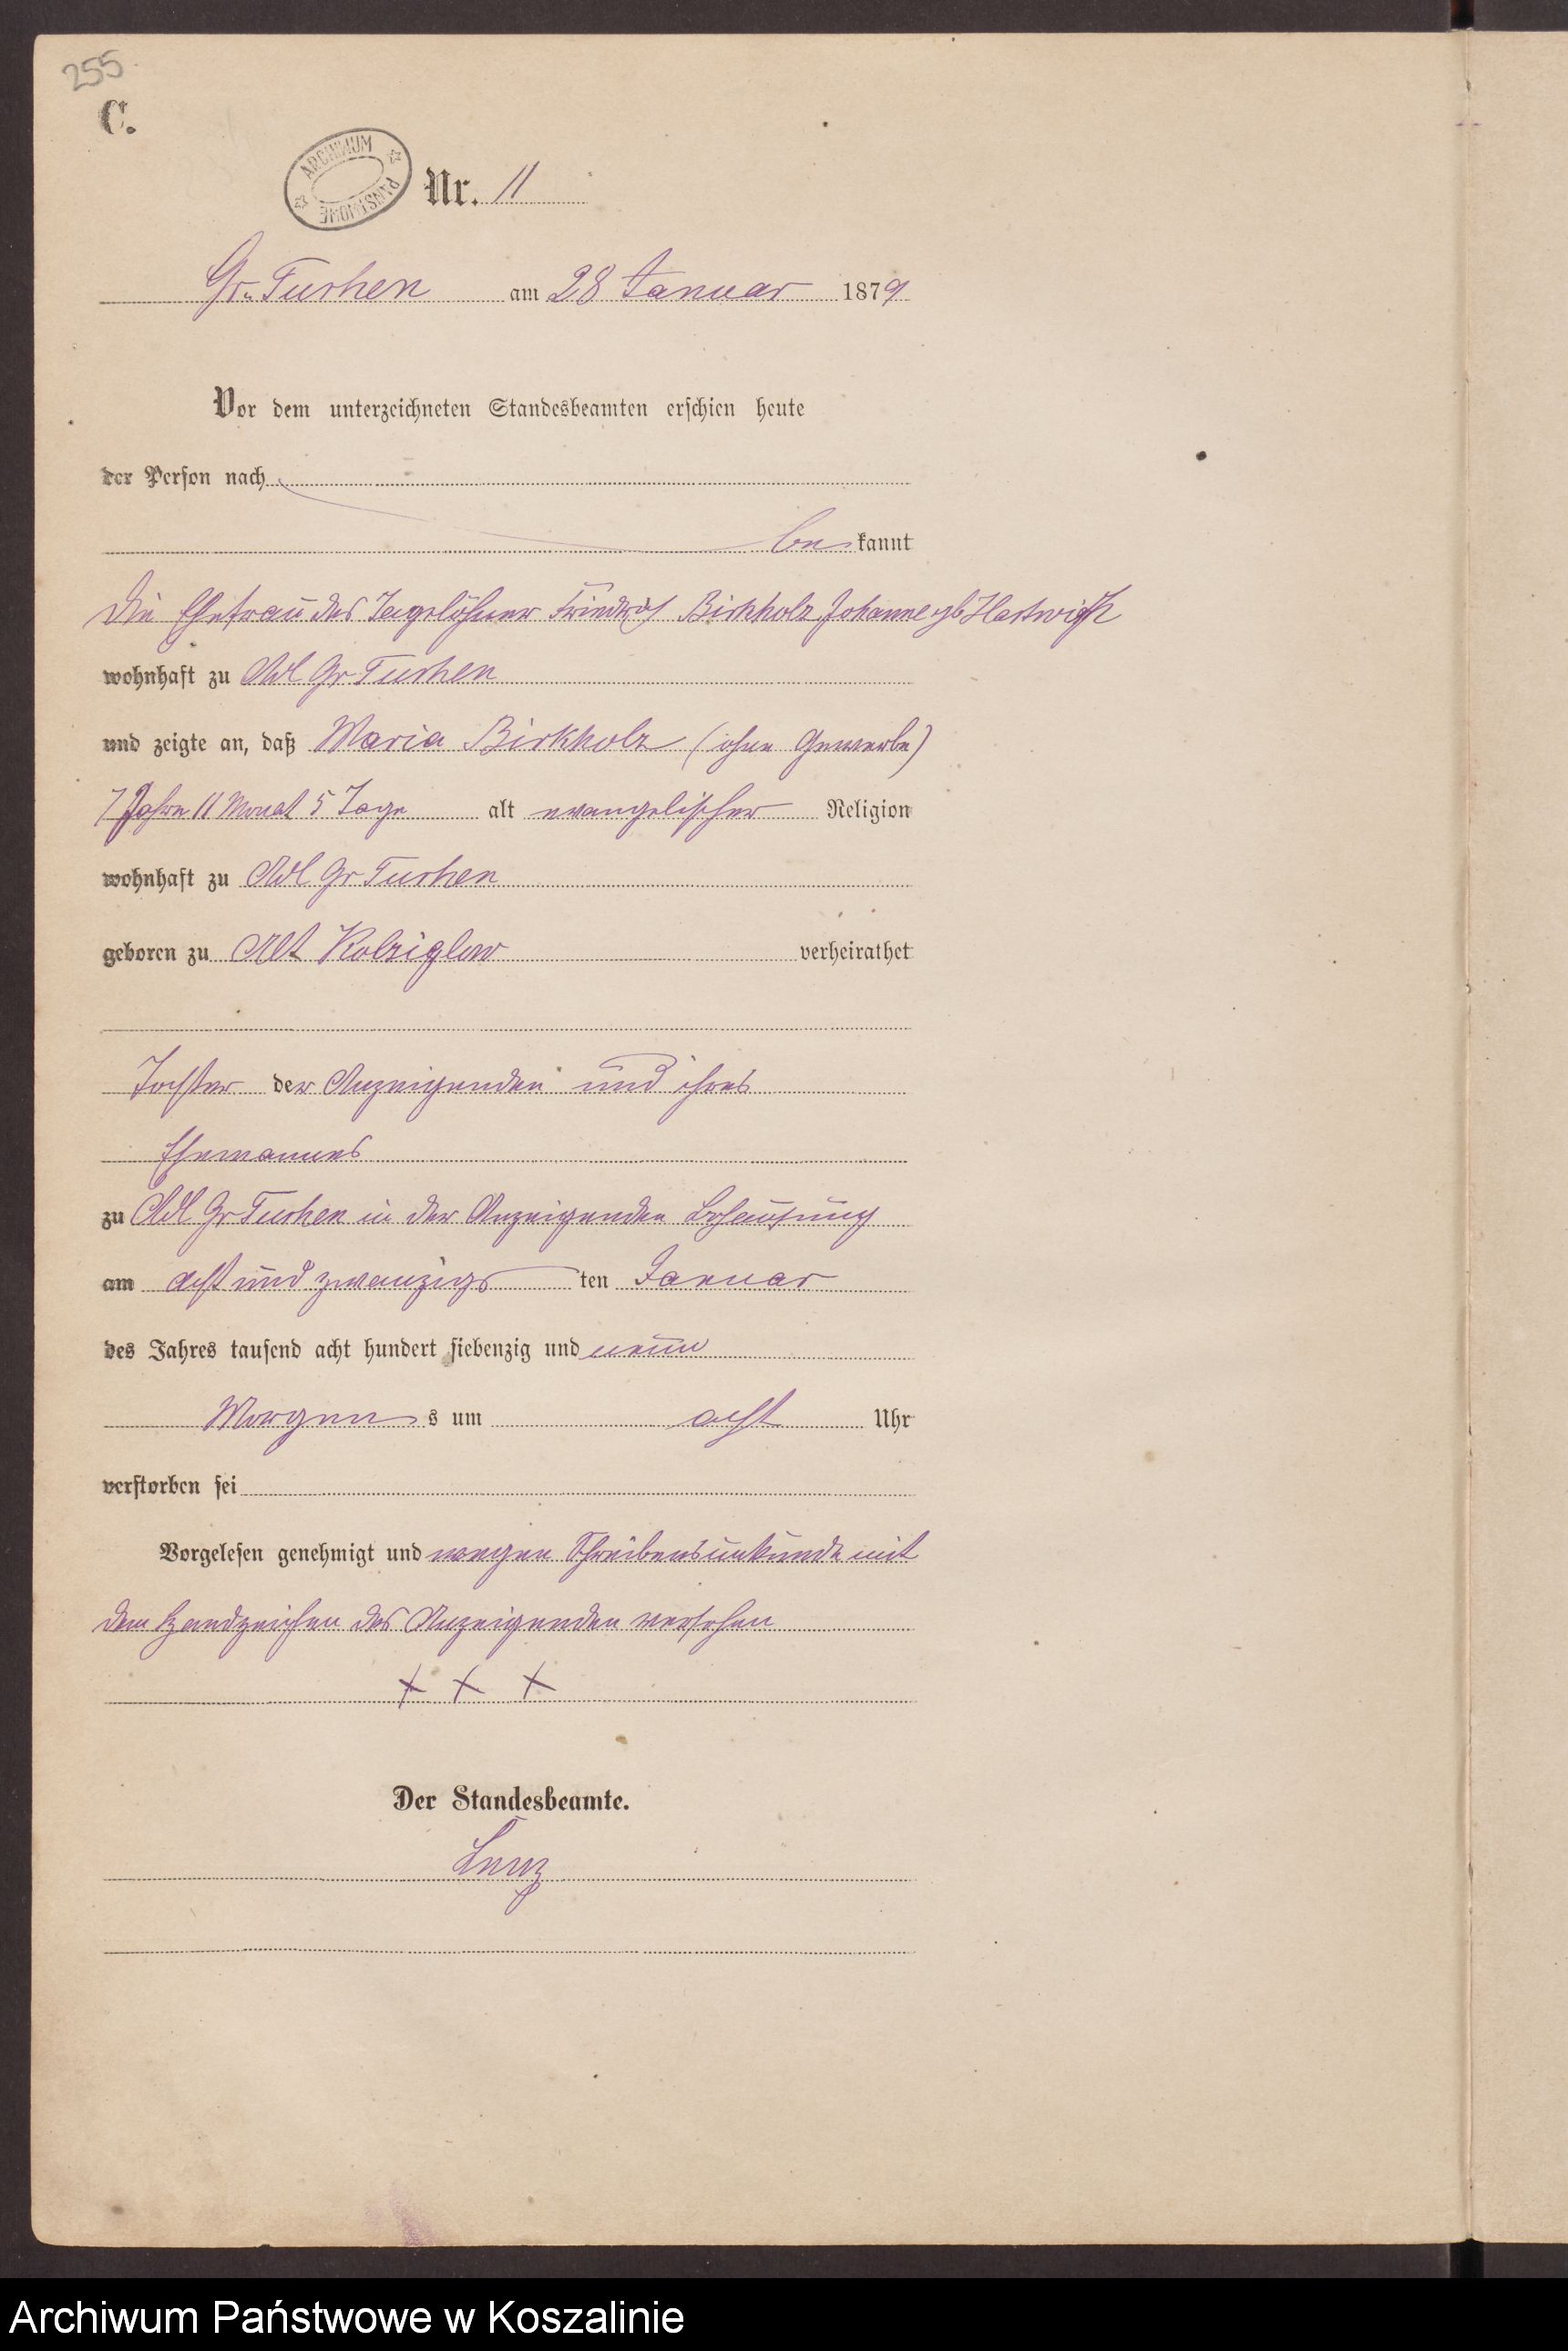 255
C.
ARCHIWUM PAŃSTWOWE
Nr. 11
Gr. Tuchen am 28 Januar 1879
Vor dem unterzeichneten Standesbeamten erschien heute
der Person nach
be kannt
Die Ehefrau des Tagelöhner Friedrich Birkholz Johanne gb Hartwich
wohnhaft zu Adl Gr Tuchen
und zeigte an, daß Maria Birkholz (ohne Gewerbe)
7 Jahre 11 Monat 5 Tage alt evangelischer Religion
wohnhaft zu Adl Gr Tuchen
geboren zu Alt Kolziglow verheirathet
Tochter der Anzeigenden und ihres
Ehemannes
zu Adl Gr Tuchen in der Anzeigenden Behausung
am acht und zwanzigs ten Januar
des Jahres tausend acht hundert siebenzig und neun
Morgen s um acht Uhr
verstorben sei
Vorgelesen genehmigt und wegen Schreibensunkunde mit
dem Handzeichen des Anzeigenden versehen
+ + +
Der Standesbeamte.
Lenz
Archiwum Państwowe w Koszalinie